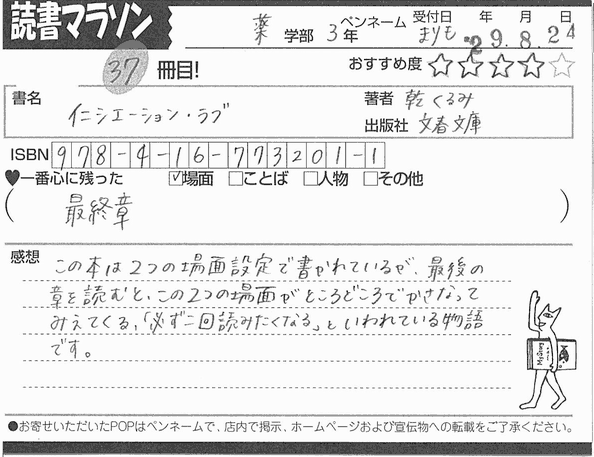 読書マラソン
薬 学部 3年 ペンネーム まりも 受付日 '29年 8月 24日
37 冊目! おすすめ度 ☆☆☆☆☆
書名 イニシエーション・ラブ 著者 乾くるみ
出版社 文春文庫
ISBN 978-4-16-773201-1
♥一番心に残った ☑場面 □ことば □人物 □その他
( 最終章 )
感想 この本は2つの場面設定で書かれているが、最後の
章を読むと、この2つの場面がところどころでかさなって
みえてくる、「必ず二回読みたくなる」といわれている物語
です。
●お寄せいただいたPOPはペンネームで、店内で掲示、ホームページおよび宣伝物への転載をご了承ください。